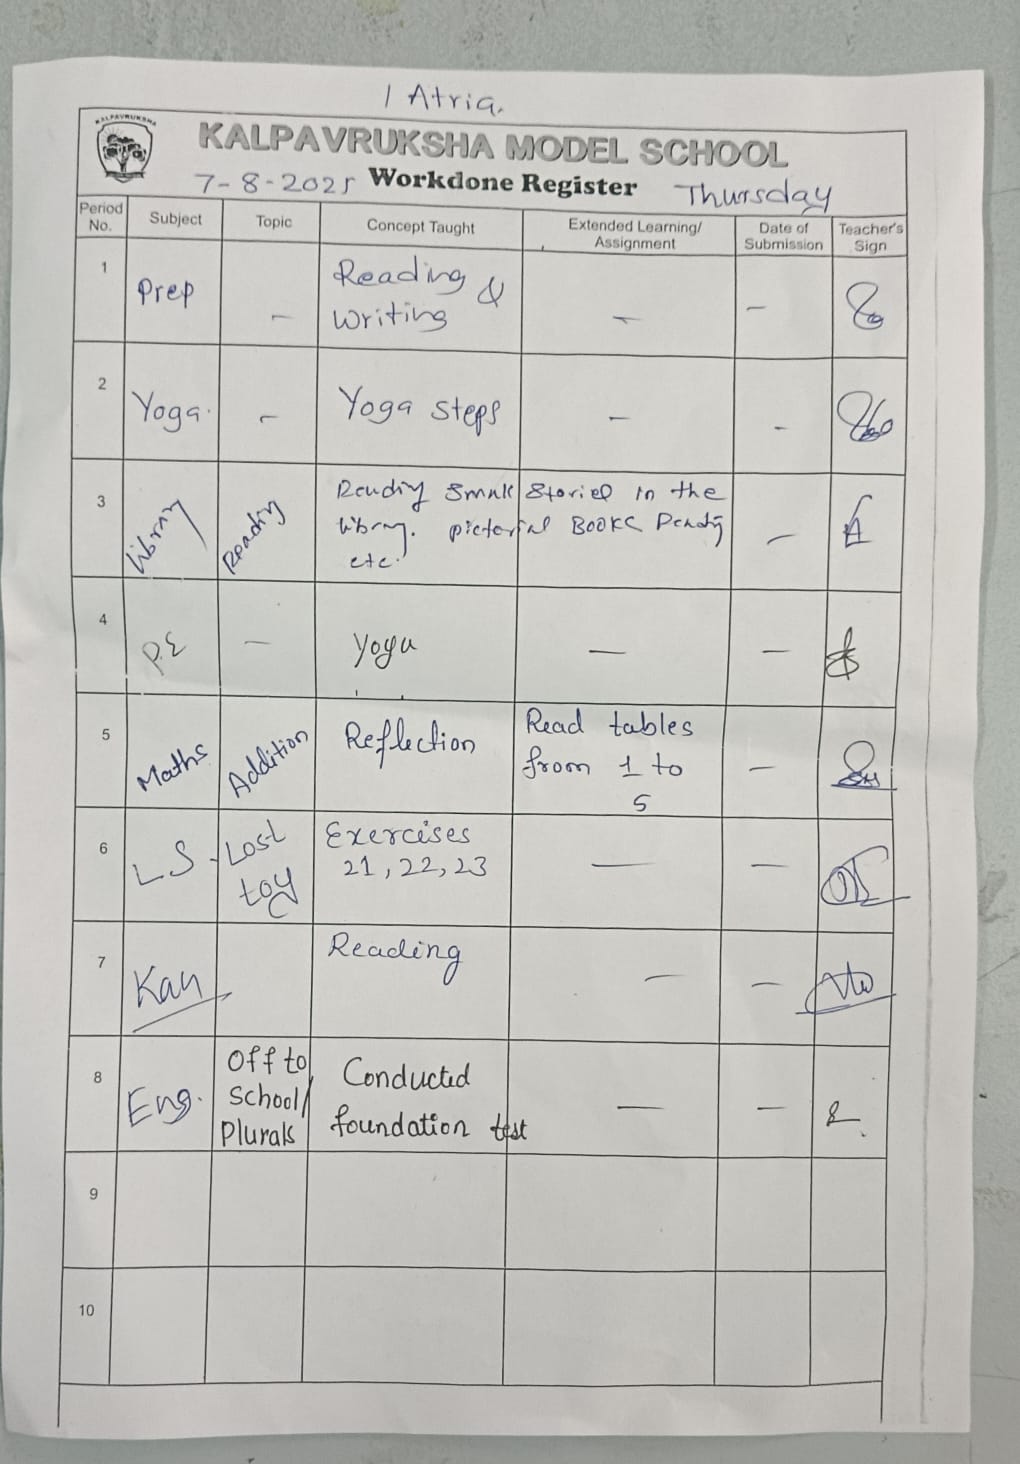 1 Atria.
KALPAVRUKSHA
KALPAVRUKSHA MODEL SCHOOL
7-8-2025 Workdone Register Thursday
Period No. Subject Topic Concept Taught Extended Learning/ Assignment Date of Submission Teacher's Sign
1 Prep - Reading & - -
writing
2 Yoga. - Yoga steps - -
3 Library Reading Reading Small Stories in the -
library. pictorial BOOKS
etc.
4 P.E - Yoga - -
5 Maths Addition Reflection Read tables -
from 1 to
5
6 L S Lost Exercises - -
toy 21, 22, 23
7 Kan Reading - -
8 Eng. Off to Conducted - -
school/ foundation test
Plurals
9
10